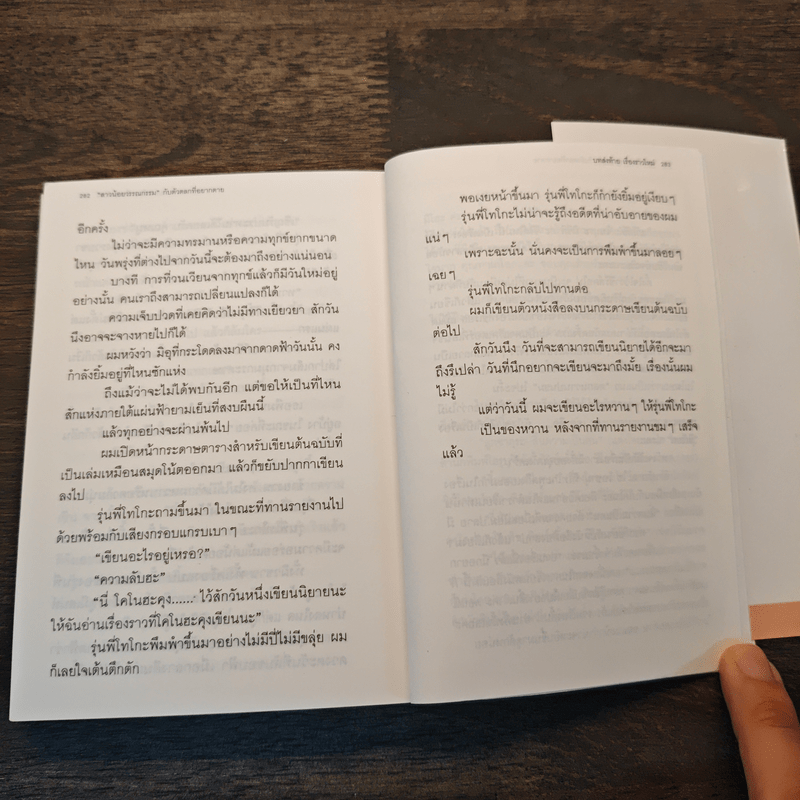 282 "สาวน้อยวรรณกรรม" กับตัวตลกที่อยากตาย
อีกครั้ง
ไม่ว่าจะมีความทรมานหรือความทุกข์ยากขนาด
ไหน วันพรุ่งที่ต่างไปจากวันนี้จะต้องมาถึงอย่างแน่นอน
บางที การที่วนเวียนจากทุกข์แล้วก็มีวันใหม่อยู่
อย่างนั้น คนเราถึงสามารถเปลี่ยนแปลงก็ได้
ความเจ็บปวดที่เคยคิดว่าไม่มีทางเยียวยา สักวัน
นึงอาจจะจางหายไปก็ได้
ผมหวังว่า มิอุที่กระโดดลงมาจากดาดฟ้าวันนั้น คง
กำลังยิ้มอยู่ที่ไหนซักแห่ง
ถึงแม้ว่าจะไม่ได้พบกันอีก แต่ขอให้เป็นที่ไหน
สักแห่งภายใต้แผ่นฟ้ายามเย็นที่สงบผืนนี้
แล้วทุกอย่างจะผ่านพ้นไป
ผมเปิดหน้ากระดาษตารางสำหรับเขียนต้นฉบับที่
เป็นเล่มเหมือนสมุดโน้ตออกมา แล้วก็ขยับปากกาเขียน
ลงไป
รุ่นพี่โทโกะถามขึ้นมา ในขณะที่ทานรายงานไป
ด้วยพร้อมกับเสียงกรอบแกรบเบาๆ
"เขียนอะไรอยู่เหรอ?"
"ความลับฮะ"
"นี่ โคโนฮะคุง...... ไว้สักวันหนึ่งเขียนนิยายนะ
ให้ฉันอ่านเรื่องราวที่โคโนฮะคุงเขียนนะ"
รุ่นพี่โทโกะพึมพำขึ้นมาอย่างไม่มีปี่ไม่มีขลุ่ย ผม
ก็เลยใจเต้นตึกตัก
บทส่งท้าย เรื่องราวใหม่ 283
พอเงยหน้าขึ้นมา รุ่นพี่โทโกะก็กำยังยิ้มอยู่เงียบๆ
รุ่นพี่โทโกะไม่น่าจะรู้ถึงอดีตที่น่าอับอายของผม
แน่ๆ
เพราะฉะนั้น นั่นคงจะเป็นการพึมพำขึ้นมาลอยๆ
เฉยๆ
รุ่นพี่โทโกะกลับไปทานต่อ
ผมก็เขียนตัวหนังสือลงบนกระดาษเขียนต้นฉบับ
ต่อไป
สักวันนึง วันที่จะสามารถเขียนนิยายได้อีกจะมา
ถึงรึเปล่า วันที่นึกอยากจะเขียนจะมาถึงมั้ย เรื่องนั้นผม
ไม่รู้
แต่ว่าวันนี้ ผมจะเขียนอะไรหวานๆ ให้รุ่นพี่โทโกะ
เป็นของหวาน หลังจากที่ทานรายงานขมๆ เสร็จ
แล้ว